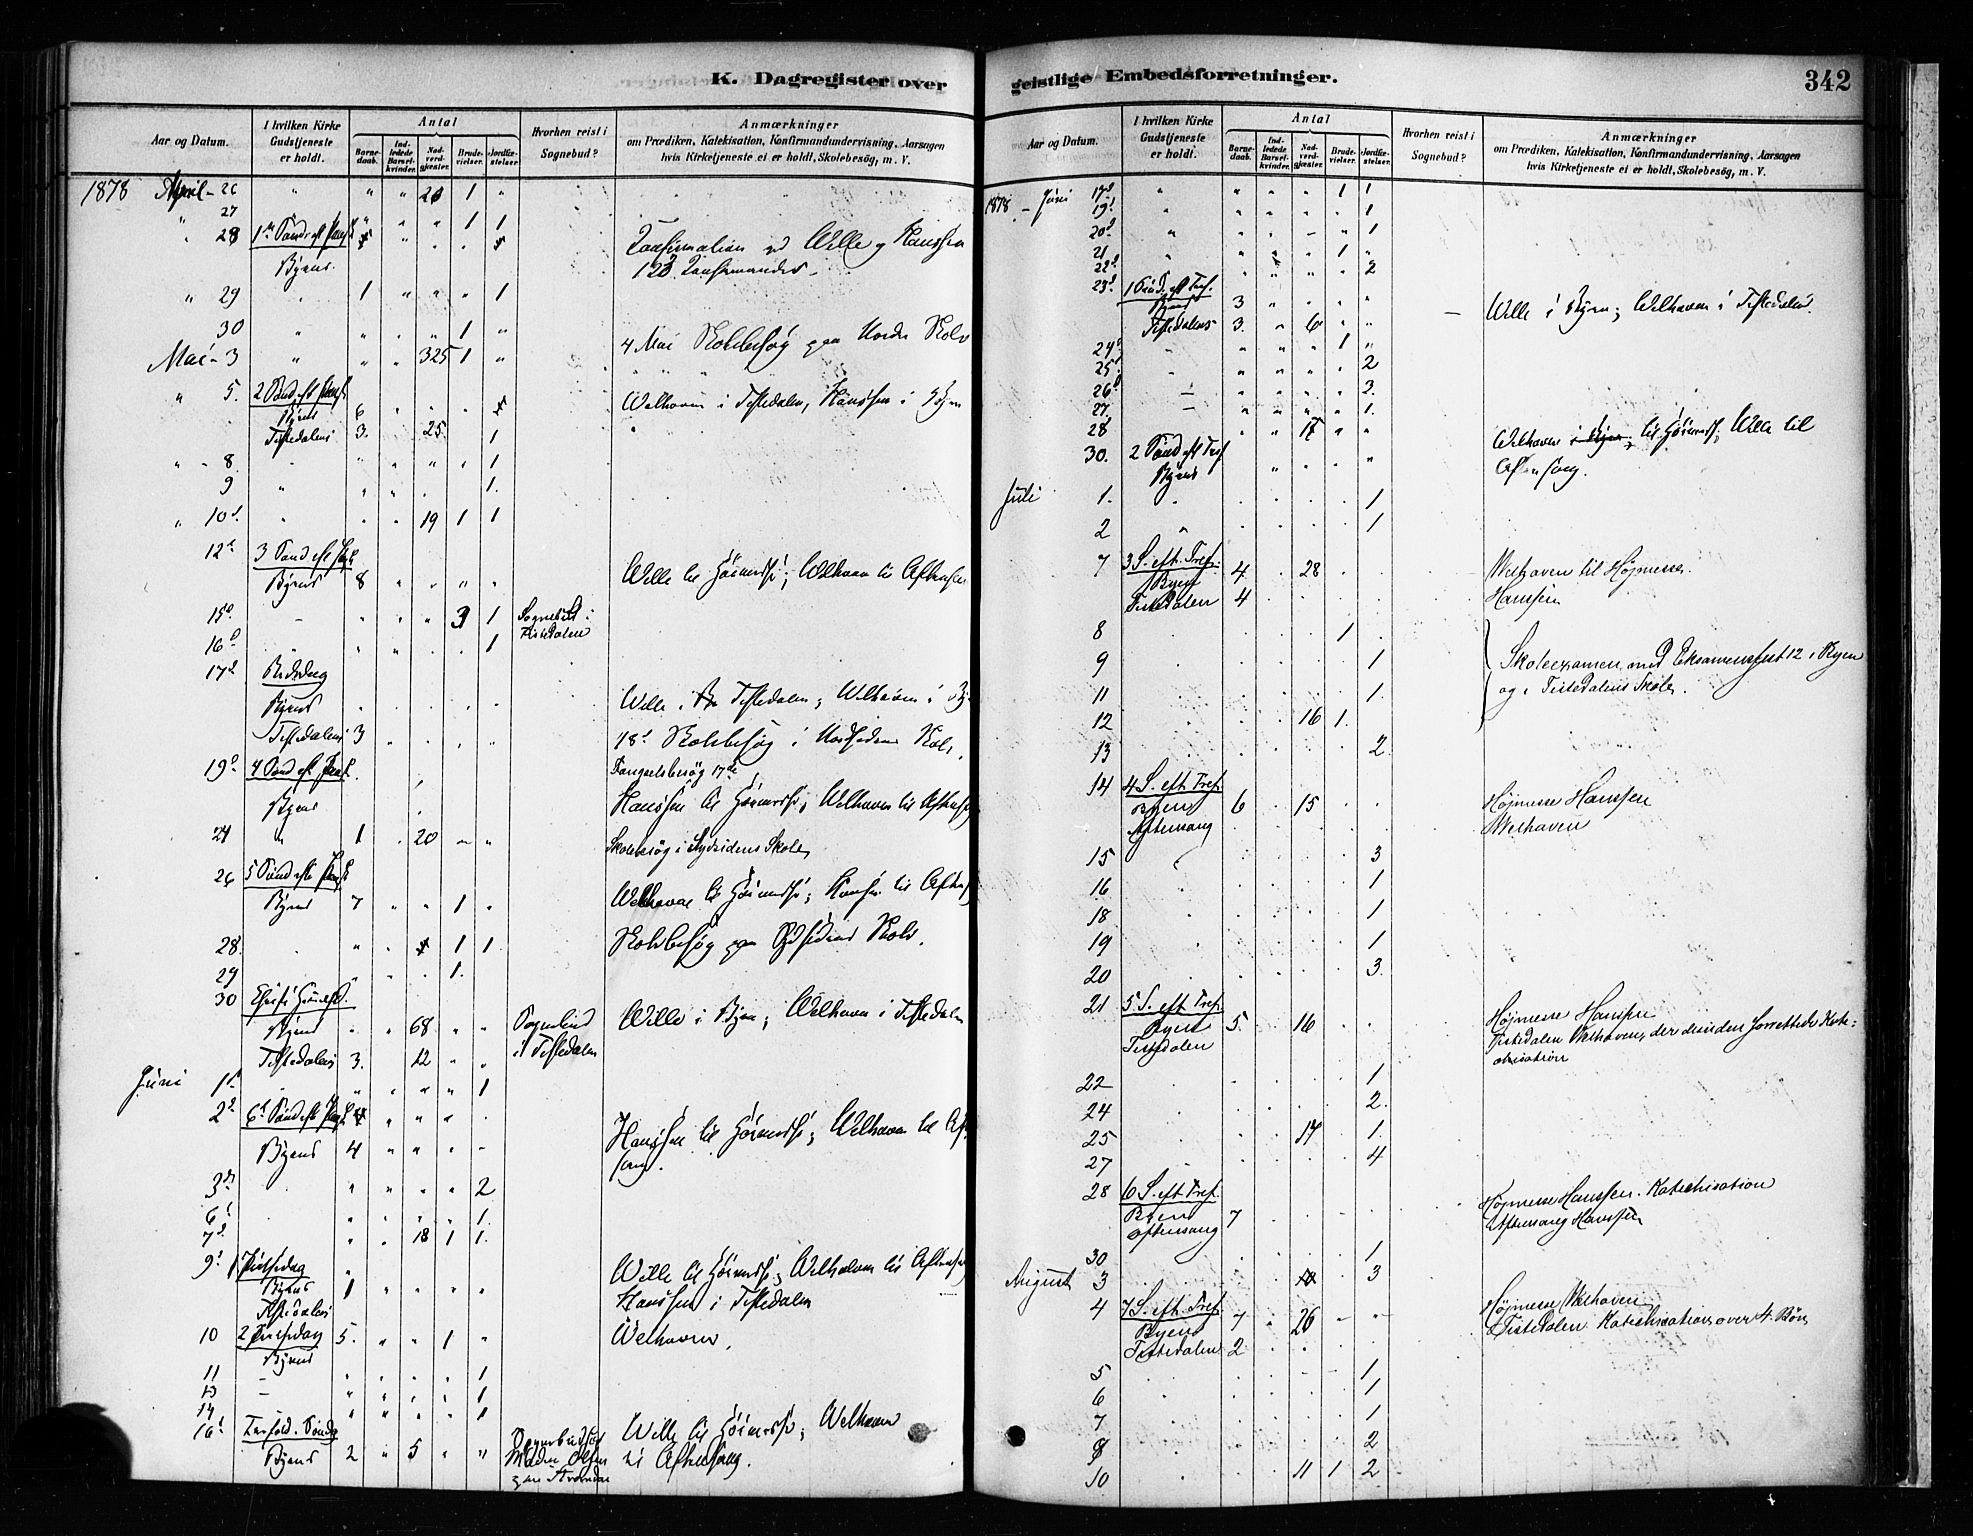 K. Dagregister over
Aar og Datum.
I hvilken Kirke Gudstjeneste er holdt.
Antal
Barnedaab.
Indledede Barselkvinder.
Nadverdgjæster.
Brudevielser.
Jordfæstelser.
Hvorhen reist i Sognebud?
Anmærkninger
om Prædiken, Katekisation, Konfirmandundervisning, Aarsagen
hvis Kirketjeneste ei er holdt, Skolebesøg, m. V.
1878 April - 26 " " " 1 "
27 " " " 1 1
28
Byens.
Konfirmation ved Wille og Hanssen
Konfirmander
" 29 1 " " " 1
30 " " " " 1 "
Mai - 3 " " " 325 1 "
4 Mai Skolebesøg paa Nordre Skole
" 5. 2 Sønd eft Paask
Byens 6
Welhaven i Tistedalen, Hanssen i Byen
Tistedalens 3. 25 1
" 8 " " " " 1
9 " " " 1.
" 10d " " 19 1 1
12te 3 Sønd eft Paask
Byens 8 " " " "
Wille til Høimesse; Welhaven til Aftensang
15d " " " 3 1 Sognebud i
Tistedalen
16d " " 1
17d Bededag
Byens
Wille i Tistedalen; Welhaven i Byen
Tistedalens 3
18d Skolebesøg i Nordsidens Skole.
Fangselsbesøg 17de
19d 4 Sønd eft Paask
Byens
Hanssen til Høimesse; Welhaven til Aftensang
24 " 1 20 " "
Skolebesøg i Sydsidens Skole
26 5 Sønd eft Paask
Byens 7 " " 1 "
Welhaven til Høimesse; Hanssen til Aftensang
28. " 1 1
Skolebesøg paa Sydsidens Skole.
29 1.
30 Christi Himmelf.
Byens " " 68 " " Sognebud
i Tistedalen
Wille i Byen; Welhaven i Tistedalen
Tistedalens 3. 12 " "
Juni 1d " " " " 1
2d 6d Sønd eft Paask
Byens 4 " " " "
Hanssen til Høimesse; Welhaven til Aften
sang.
3d " " " " 2
6d " " " " 1
7d " " 18 1 1.
9d Pintsedag
Byens 1 " " " "
Wille til Høimesse; Welhaven til Aftensang
Tistedalens
Hanssen i Tistedalen
10 2 Pintsedag 5. " " 1 "
Byens
Welhaven.
11 1
13 1
14 1
16d Trefold. Sønda
Byens 2 " 5 " "
Wille til Høimesse; Welhaven
til Aftensang.
geistlige Embedsforretninger.
342
Aar og Datum.
I hvilken Kirke Gudstjeneste er holdt.
Antal
Barnedaab.
Indledede Barselkvinder.
Nadverdgjæster.
Brudevielser.
Jordfæstelser.
Hvorhen reist i Sognebud?
Anmærkninger
om Prædiken, Katekisation, Konfirmandundervisning, Aarsagen
hvis Kirketjeneste ei er holdt, Skolebesøg, m. V.
1878 - Juni 17d " " " " 1 1
19d " " " " " 1
20d " " " " " 1
21 " " " 1 "
22d " " " " 2
23d 1 Sønd. eft Tref.
Byens 3 " " " "
Wille i Byen; Welhaven i Tistedalen.
Tistedalens 3. " 6 " "
24d " " " 1 "
25d " " " " 2
26d 3.
27. 1.
28 " " " "
30. 2 Sønd eft Tref
Byens
Welhaven til Høimesse, Wille til
Aftensang.
Juli 1. 1
2 " 1
7 3 S. eft. Tref.
Byens 4 28
Tistedalen 4
Welhaven til Højmesse.
Hanssen
8 1
9 1
11 1.
12 16 1.
Skoleexamen med Eksamensfest 12 i Byen
og i Tistedalens Skole.
13 2.
14 4 S. eft Tref.
Byens 6 15
Aftensang
Højmesse Hanssen
Welhaven
15 3
16 1
18 1
19 1
20 3.
21 5 S. eft Tref.
Byens 5. 16
Tistedalen
Højmesse Hanssen
Tistedalen Welhaven, der desuden forrettede Kate-
chisation
22 1
24 2.
25 17 1.
27 4
28 6 S. eft Tref.
Byens 7
Aftensang
Højmesse Hanssen. Katechisation
Aftensang Hanssen
30 1
August 3 3
4 7 S. eft. Tref.
Byens 7 " 26 " "
Tistedalens 2
Højmesse Welhaven
Tistedalen Katechisation over 4. Bøn
5 1
6 1
7 1
8 2
10 11 1 2